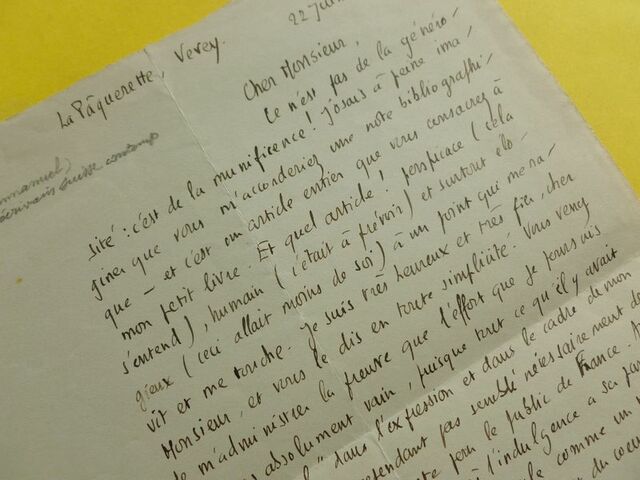 La Pâquerette, Vevey.
22 Jui
Cher Monsieur,
Ce n'est pas de la généro-
sité : c'est de la munificence ! J'osais à peine ima-
giner que vous m'accorderiez une note bibliographi-
que — et c'est un article entier que vous consacrez à
mon petit livre. Et quel article ! perspicace (cela
s'entend), humain (c'était à prévoir) et surtout élo-
gieux (ceci allait moins de soi) à un point que me ra-
vit et me touche. Je suis très heureux et très fier, cher
Monsieur, et vous le dis en toute simplicité. Vous venez
de m'administrer la preuve que l'effort que je poursuis
absolument vain, puisque tout ce qu'il y avait
dans l'expression et dans le cadre de mon
pas semblé nécessairement de
pour le public de France.
l'indulgence a sa par
comme un
du coeur
mmanuel)
écrivain suisse contemp